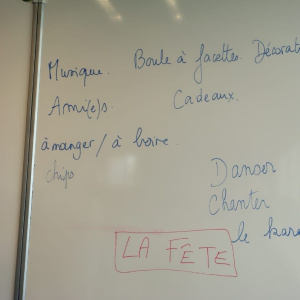 Musique. Boule à facettes. Décorat
Ami(e)s. Cadeaux.
à manger / à boire.
chips
Danser
Chanter
le kara
LA FÊTE